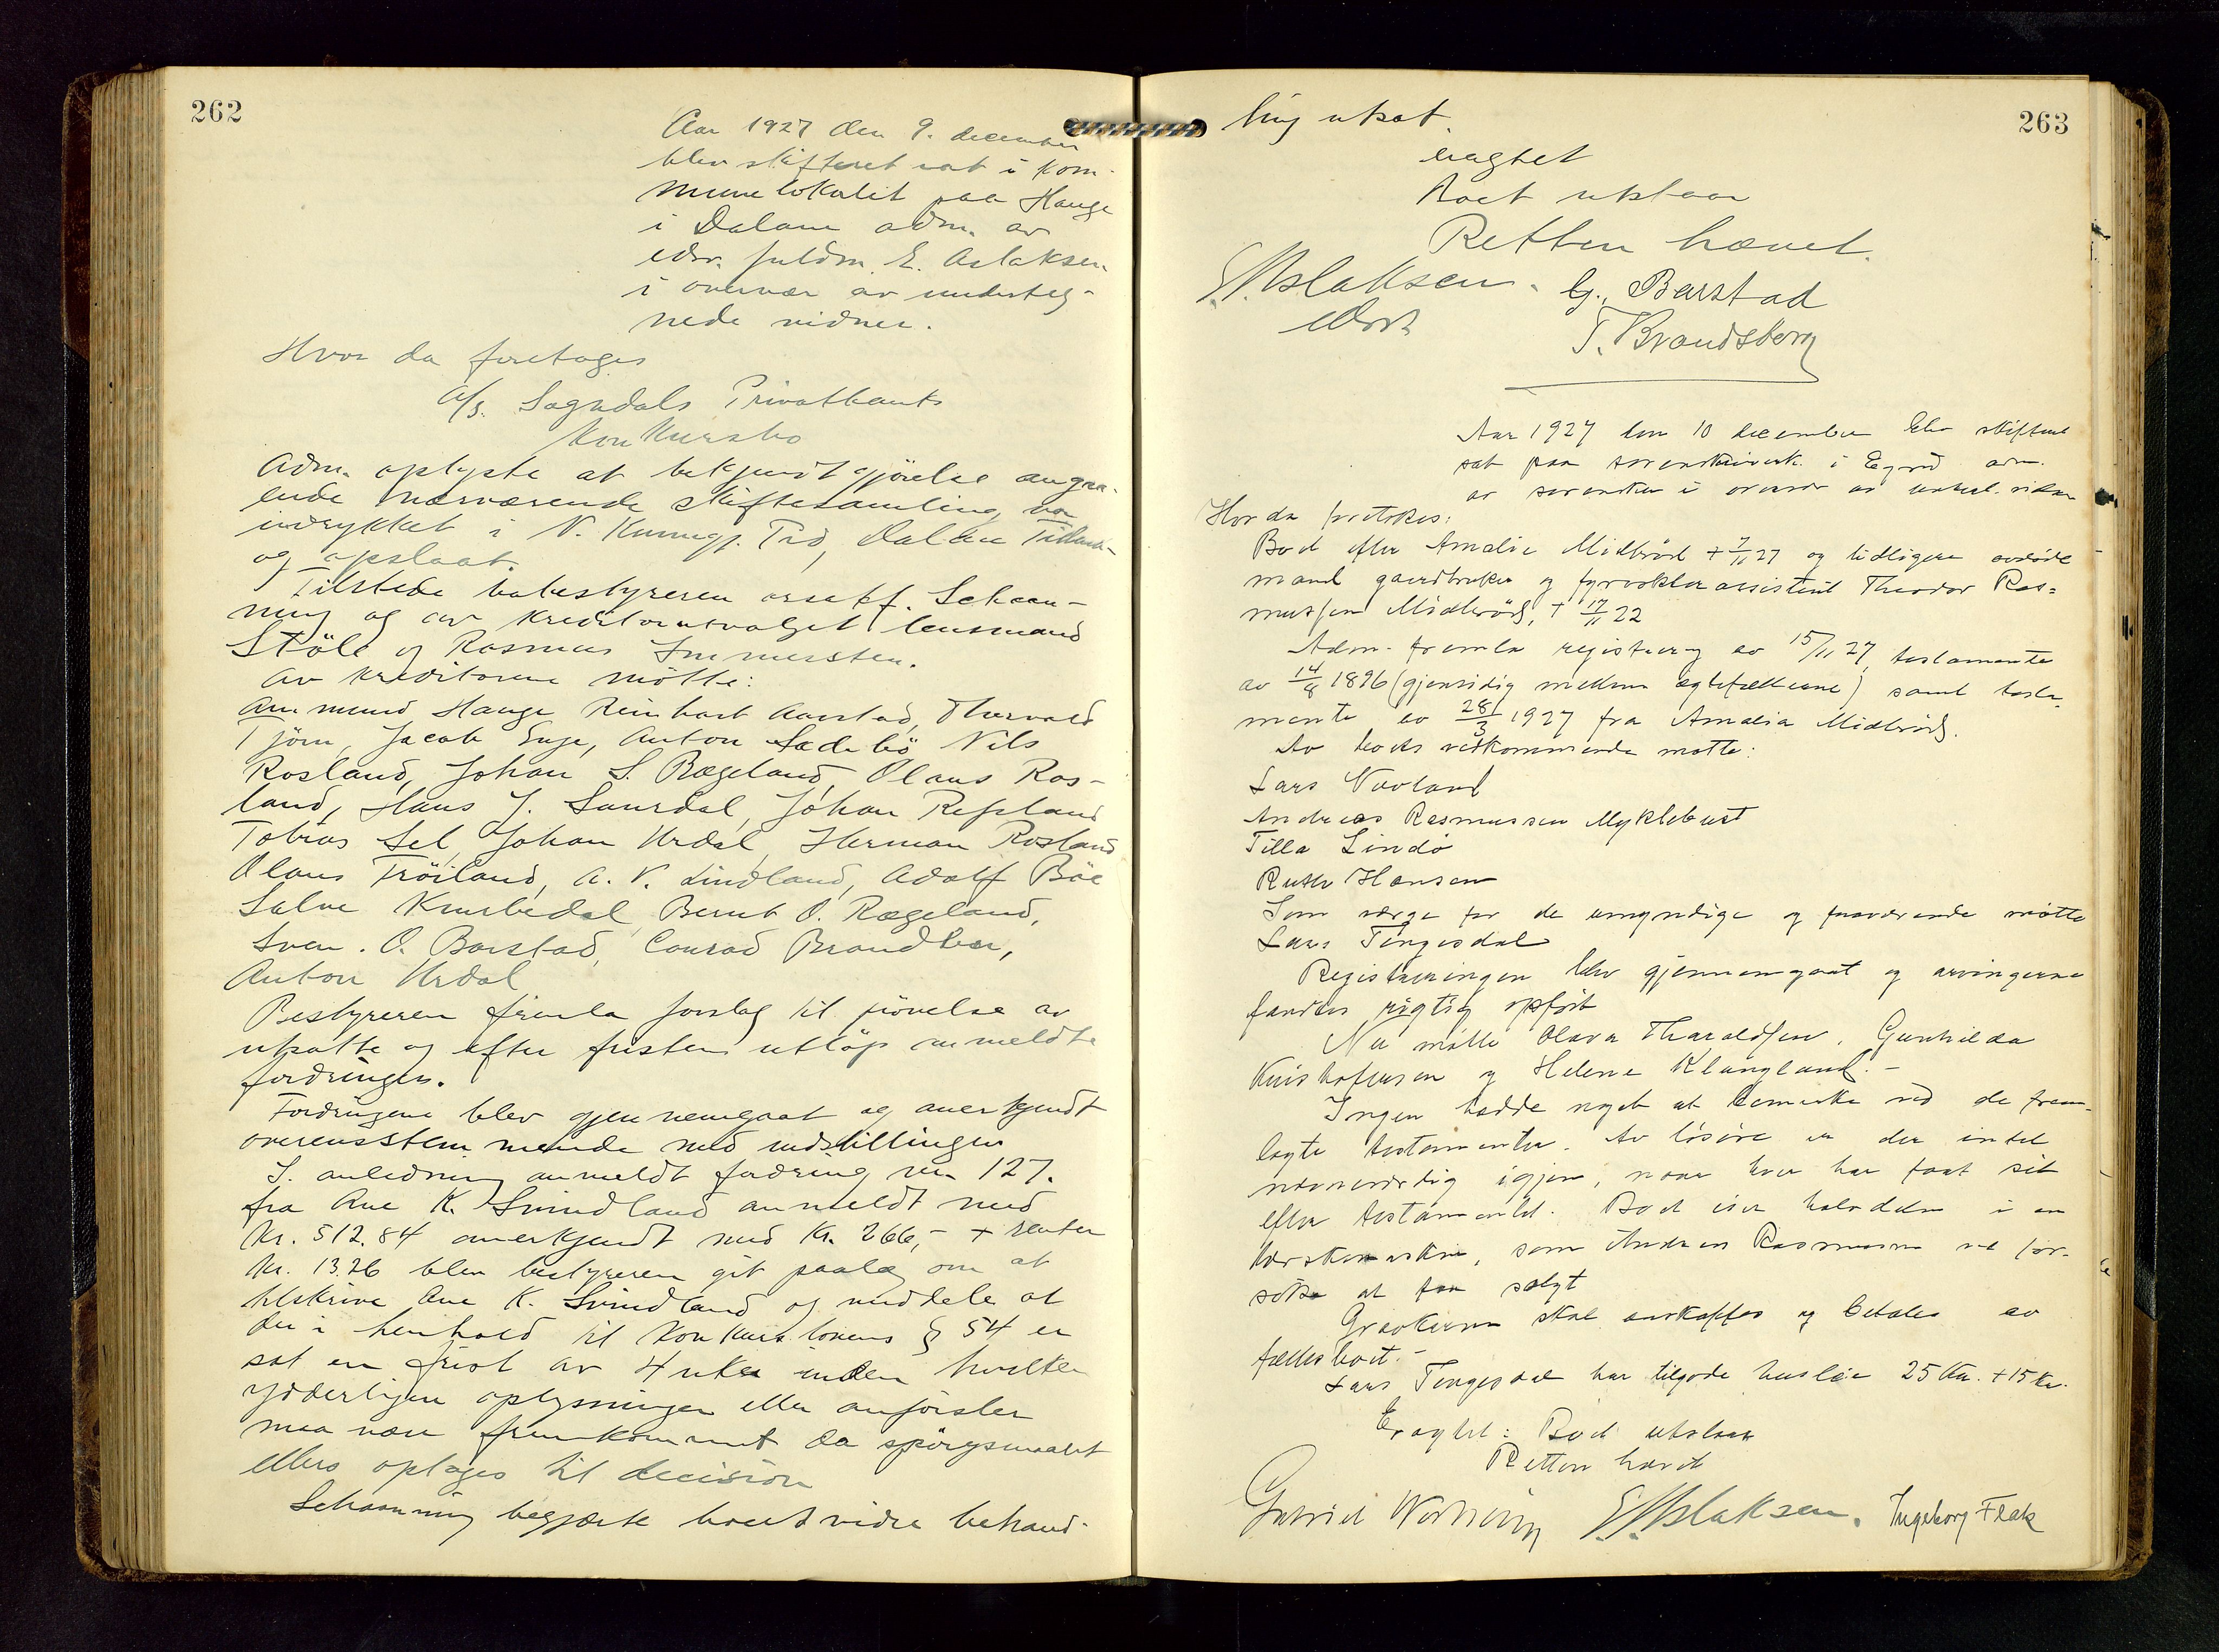 262
Aar 1927 den 9. december
blev skifteret sat i kom-
munelokalet paa Hauge
i Dalane adm. av
edsv. fuldm. E. Aslaksen
i overvær av underteg-
nede vidner.
Hvor da foretoges
A/S. Sogndals Privatbanks
Konkursbo
Adm. oplyste at bekjendtgjörelse angaa-
ende nærværende skiftesamling var
indrykket i N. Kunngj. Tid, Dalane Tidende
og opslaat.
Tilstede bobestyreren orsakf. Schaan-
ning og av kreditorutvalget lensmand
Stöle og Rasmus Immersten.
Av kreditorene mötte:
Ammund Hauge Reinhart Aarstad, Thorvald
Tjörn, Jacob Enge, Anton Sadebö Nils
Rosland, Johan S. Rægeland, Olaus Ros-
land, Hans J. Laurdal, Johan Refsland
Tobias Sel, Johan Urdal, Herman Rosland
Olaus Tröiland, A. V. Lindland, Adolf Böe
Salve Knubedal, Bernt O. Rægeland,
Sven. O. Barstad, Conrad Brandsber,
Anton Urdal
Bestyreren fremla forslag til prövelse av
utsatte og efter fristens utlöp anmeldte
fordringer.
Fordringene blev gjennemgaat og anerkjendt
overensstemmende med indstillingen
I. anledning anmeldt fordring nr. 127.
fra Ane K. Svindland anmeldt med
Kr. 512.84 anerkjendt med Kr. 266,- + renter
Kr. 13.26 blev bestyreren git paalæg om at
tilskrive Ane K. Svindland og meddele at
der i henhold til Konkurslovens § 54 er
sat en frist av 4 uker inden hvilken
yderligere oplysninger eller anförsler
maa være fremkommet da spörgsmaalet
ellers optages til decision
Schaanning begjærte boets vidre behand-
263
ling utsat.
eragtet
Boet utstaar
Retten hævet.
E. Aslaksen. G. Barstad
edsv.
T. Brandsberg
Aar 1927 den 10 december blev skifteret
sat paa sorenskriverk. i Egersd adm.
av sorenskr. i overvær av undert. vidner
Hvor da foretokes:
Boet efter Amalie Midbröd + 7/11 27 og tidligere avdöde
mand gaardbruker og fyrvokterassistent Theodor Ras=
mussen Midbröd, + 17/11 22
Adm. fremla registrering av 15/11 27, testamente
av 14/8 1896 (gjensidig mellem ægtefællerne) samt testa-
mente av 28/3 1927 fra Amalia Midbröd.
Av boets vedkommende mötte:
Lars Novland
Andreas Rasmussen Myklebust
Tilla Lindö
Ruth Hansen
Som værge for de umyndige og fraværende mötte
Lars Tengesdal
Registreringen blev gjennemgaat og arvingerne
fandtes rigtig opfört
Nu mötte Olava Tharaldsen, Gunhilda
Kristoffersen og Helene Klungland.-
Ingen hadde noget at bemerke ved de frem-
lagte testamenter. Av lösöre er der intet
nævneværdig igjen, naar hver har faat sit
efter testamentet. Boet eier halvdelen i en
tærskemaskin, som Andreas Rasmussen vil for-
söke at faa solgt
Gravstenen skal anskaffes og betales av
fællesboet.-
Lars Tengesdal har tilgode husleie 25 Kr. + 15 Kr.
Eragtet: Boet utstaar
Retten hævet
E. Aslaksen. Ingeborg Flak